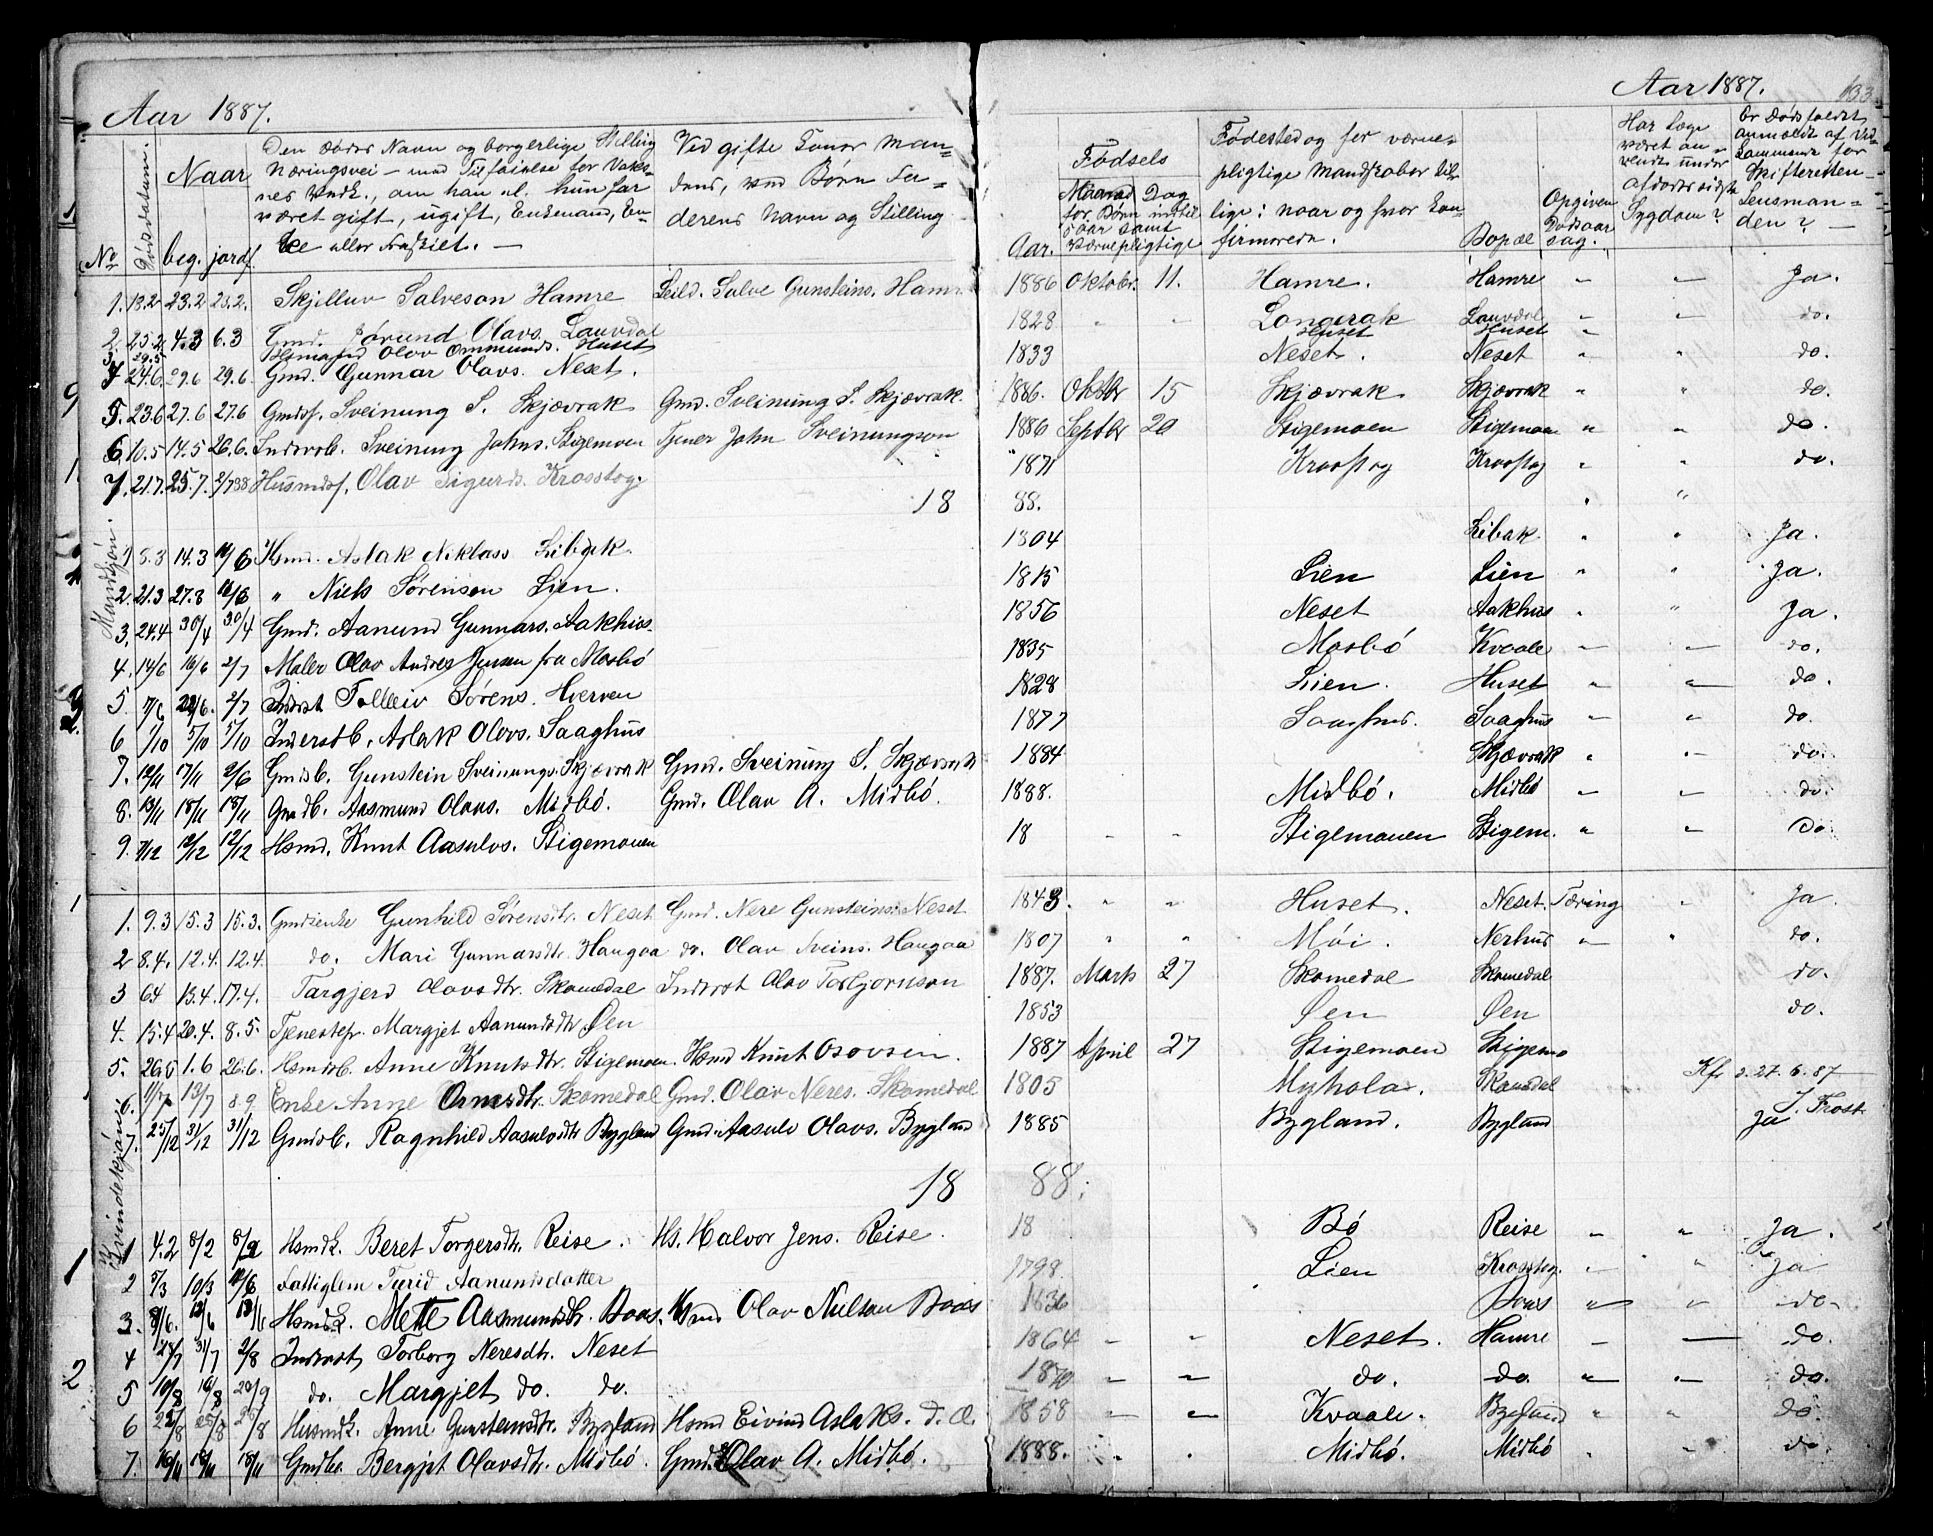 Aar 1887.
Aar 1887.
133
No
Dødsdatum.
Naar
beg. jordf.
Den dødes Navn og borgerlige Stilling
Næringsvei – med Tilføielse for Voks-
nes Vedk., om han el. hun har
været gift, ugift, Enkemand, En-
ke eller fraskilt. —
Ved gifte Koner Man-
dens, ved Børn Fa-
derens Navn og Stilling
Fødsels
Aar.
Maaned Dag
for Børn indtil
5 aar samt
værnepligtige
Fødested og for værne-
pligtige Mandskaber til-
lige: naar og hvor kon-
firmerede.
Bopæl
Opgiven
Dødsaar
sag.
Har Læge
været an-
vendt under
afdødes sidste
Sygdom?
Er dødsfaldet
anmeldt af Ved-
kommende for
Skifteretten
Lensman-
den? —
Mandkjøn.
1. 13.2 23.2 23.2. Skjelluv Salveson Hamre Leild. Salve Gunsteins. Hamre 1886 Oktobr. 11. Hamre. Hamre " " Ja.
2. 25.2 4.3 6.3 Gmd. Jørund Olavs. Lauvdal 1828 " " Longerak Lauvdal " " do.
3. 29.5 Olov Ommunds. Huset Huset Huset "
4 24.6 29.6 29.6 Gmd. Gunnar Olavs. Neset. 1833 Neset. Neset " " do.
5. 23.6 27.6 27.6 Gmdsf. Sveinung S. Skjævrak Gmd. Sveinung S. Skjævrak. 1886. Oktbr 15 Skjævrak Skjævrak " " do.
6. 10.5 14.5 26.6. Indersb. Sveinung Johns. Stigemoen Tjener John Sveinungson 1886 Septbr 20 Stigemoen Stigemoen " " do.
7. 21.7. 25.7. 2/7 88 Husmdsf. Olav Sigurds. Krosstog. 1871 Krosstog Krosstog " " do.
18 88. " "
1 8.3 14.3 Hsmd. Aslak Niklass Libak. 1804 Libak. " " Ja.
2. 21.3 27.3 " Niels Sørenson Lien. 1815 Lien Lien " " Ja.
3. 24.4 30/4 30/4 Gmd. Aanund Gunnars. Aakhus. 1856 Neset Aakhus " " Ja.
4. 14/6 16/6 2/7 Maler Olav Andres Jensen fra Mosbø 1835 Mosbø Kvaale " " do.
5 22/6. 2/7 Inderst Tolleiv Sørens. Hverven 1828 Lien. Huset " " do.
6 1/10 5/10 5/10 Inderstb. Aslak Olovs. Saaghus 1877 Saaghus. Saaghus " " do.
7. 12/11 17/11 2/6 Gmdsb. Gunstein Sveinungs. Skjævrak Gmd. Sveinung S. Skjævrak 1884 Skjævrak " " do.
8. 13/11 18/11 18/11 Gmdb. Aasmund Olavs. Midbø. Gmd. Olav A. Midbø. 1888. Midbø. Midbø " " do.
9. 7/12 12/12 12/12 Hsmd. Knut Aasulvs. Stigemouen 18 " " Stigemouen Stigem. " " do.
Kvindekjøn.
1. 9.3 15.3 15.3. Gmdsenke Gunhild Sørensdtr. Neset Gmd. Nere Gunsteins. Neset 1843. " " Huset. Neset. Tæring " Ja
2 8.4. 12.4. 12.4. do. Mari Gunnarsdtr. Haugaa do. Olav Sveins. Haugaa 1807 " " Moi. Nerhus " " do.
3 6.4 13.4. 17.4. Targjerd Olavsdtr. Skomedal Inderst Olav Torbjørnson 1887. Marts 27 Skomedal Skomedal do.
4. 15.4 20.4. 8.5. Tjenestep. Margjet Aanundsdtr. Øen 1853 Øen Øen do.
5. 26.5 1.6 26.6. Hsmdsb. Anne Knutsdtr. Stigemoen. Hsmd Knut Osovsen. 1887 April 27 Stigemoen Stigemo
6. 11/7 13/7 8.9 Enke Anne Ormsdtr. Skomedal Gmd. Olav Neres. Skomedal 1805 Skomedal Kfr. 27.6.87
J. Frost
7. 25/12 31/12 31/12 Gmdsb. Ragnhild Aasulvsdtr Bygland Gmd. Aasulv Olavs. Bygland 1885 Bygland. Bygland Ja
18 88.
1 4.2 8/2 Hsmdk. Beret Torgersdtr. Reise. Hs. Halvor Jens. Reise. 18 Bø Reise " " Ja.
2 5/3 10/3 Fattiglem Turid Aanundsdotter 1798. Lien Krosstog. " " Ja
3. Hsmdk. Mette Aasmundsdtr. Boas. Hsmd Olav Nielson Boas 1836 Boas " " do.
4 31/7 2/8 Inderst Torborg Neresdtr. Neset 1864 " " Neset. Hamre " " do.
5 10/8 16/8 20/9 do. Margjet do. do. 1870 " " do. do. " " do.
6 Husmdk. Anne Gunsteinsdtr. Bygland Hsmd Eivind Aslaks. d. Æ. 1858 " " Kvaale. Bygland " " do.
7. 18/11 Gmdb. Bergjit Olavsdtr. Midbø. Gmd. Olav A. Midbø. 1888. " " Midbø. Midbø " " do.